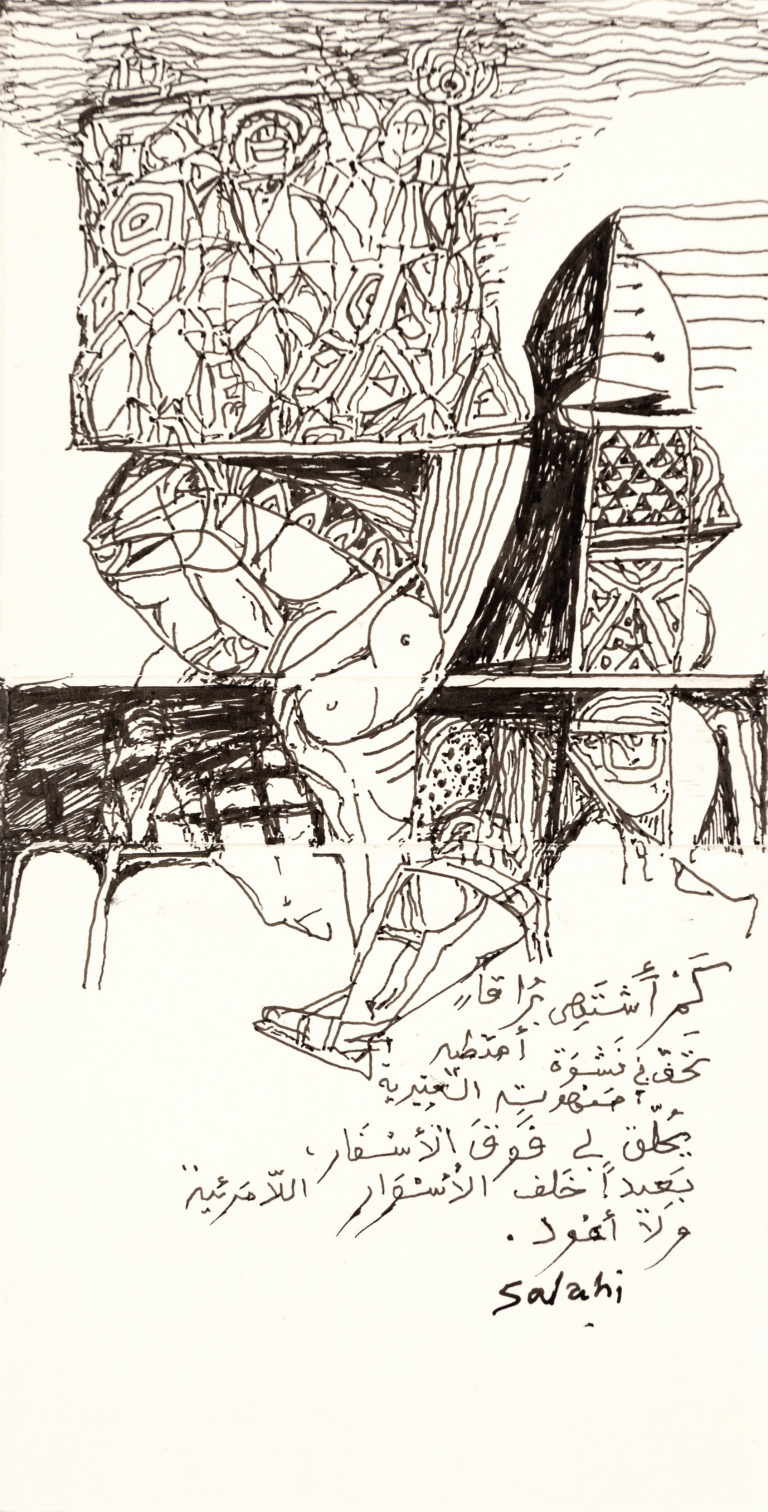 كَمْ أَشتَهِى بُرَاقاً
تَحَفّ بي نَشْوَة أمتطيه
صَهْوته العنبرية
يُحَلّق بي فَوْقَ الأسْفَار،
بَعيداً خَلف الأسْوَار اللاّمَرئية
وَلاَ أعُود.
Salahi